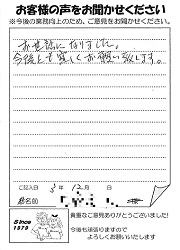 お客様の声をお聞かせください
※今後の業務向上のため、ご意見をお聞かせください。
お世話になりました。
今後とも宜しくお願い致します。
ご記入日 3年 12月 日
お名前
貴重なご意見ありがとうございました!
今後も頑張りますので
よろしくお願いいたします
Since
1979